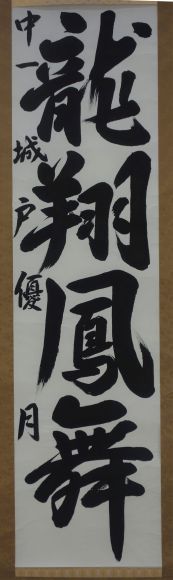 龍翔鳳舞
中一 城戸優月